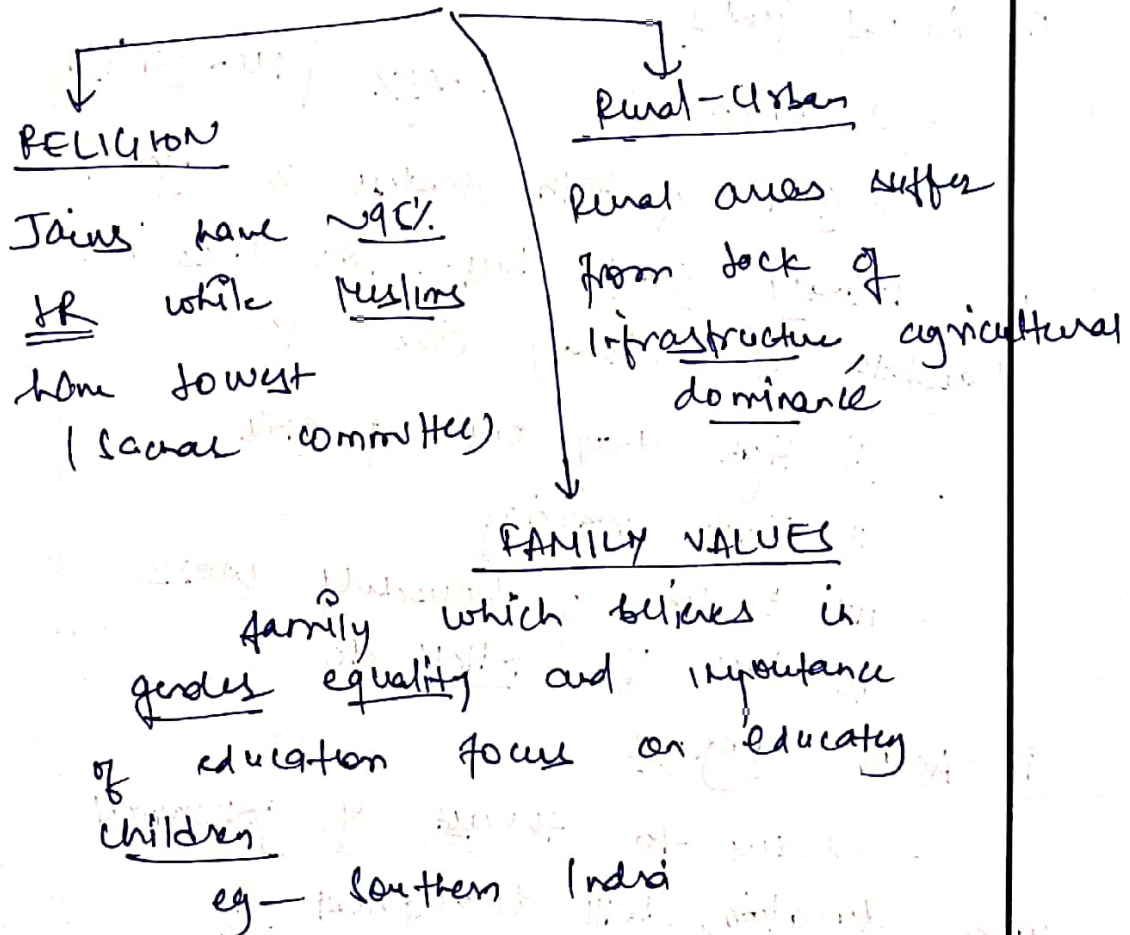 RELIGION
Jains have ~95%
LR while Muslims
have lowest
(Sachar committee)
Rural-Urban
Rural areas suffer
from lack of
infrastructure, agricultural
dominance
FAMILY VALUES
family which believes in
gender equality and importance
of education focus on educating
children
eg- Southern India